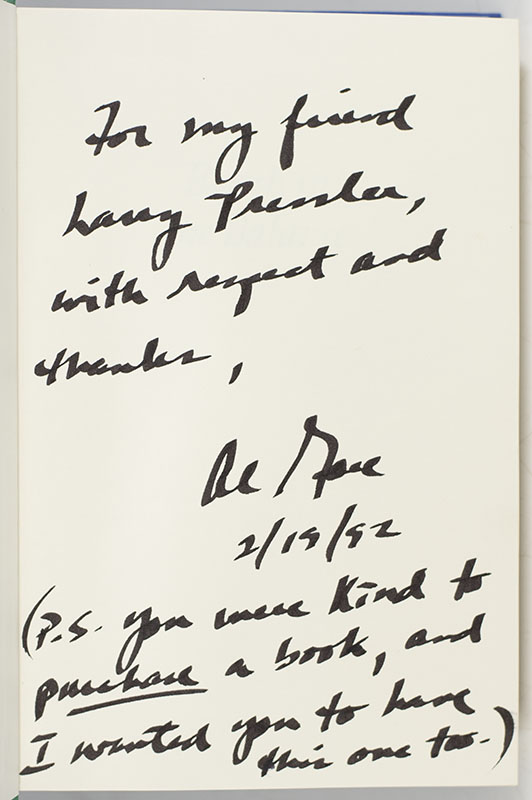 For my friend
Larry Pressler,
with respect and
thanks,
Al Gore
2/19/92
(P.S. you were kind to
purchase a book, and
I wanted you to have
this one too.)